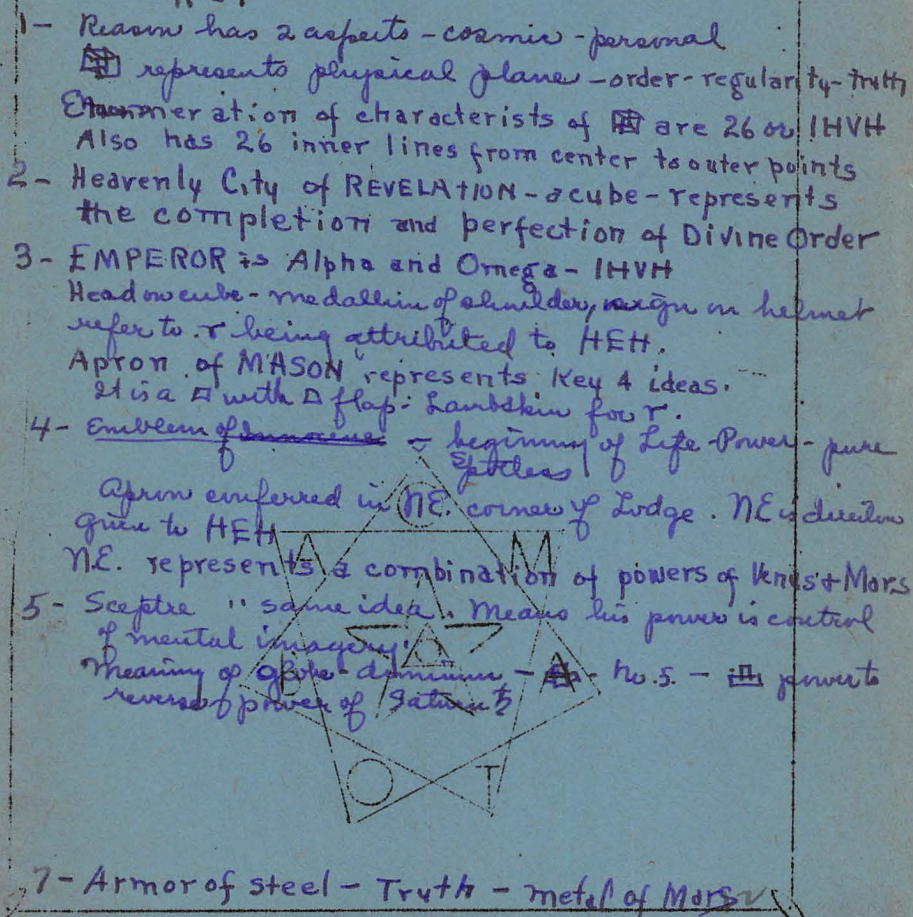 1- Reason has 2 aspects - cosmic - personal
represents physical plane - order - regularity - truth
Enumeration of characterists of are 26 or IHVH
Also has 26 inner lines from center to outer points
2- Heavenly City of REVELATION - a cube - represents
the completion and perfection of Divine Order
3- EMPEROR is Alpha and Omega - IHVH
Head on cube - medallion of shoulder, sign on helmet
refer to ♈ being attributed to HEH.
Apron of MASON represents Key 4 ideas.
It is a □ with △ flap: Lambskin for ♈.
4- Emblem of Innocence - beginning of Life-Power - pure
spotless
Apron conferred in NE. corner of Lodge. NE is direction
given to HEH
N.E. represents a combination of powers of Venus + Mars
5- Sceptre " same idea. Means his power is control
of mental imagery.
Meaning of globe - dominion - - No. 5. - power to
reverse power of Saturn ♄
A M
A
O T
7- Armor of steel - Truth - metal of Mars